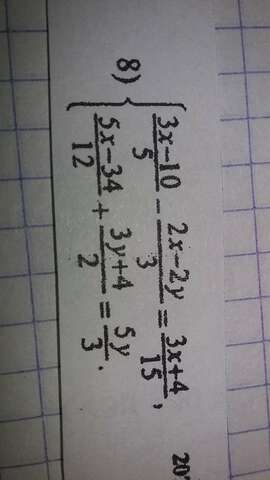 8) { (3x-10)/5 - (2x-2y)/3 = (3x+4)/15,
(5x-34)/12 + (3y+4)/2 = 5y/3.
20